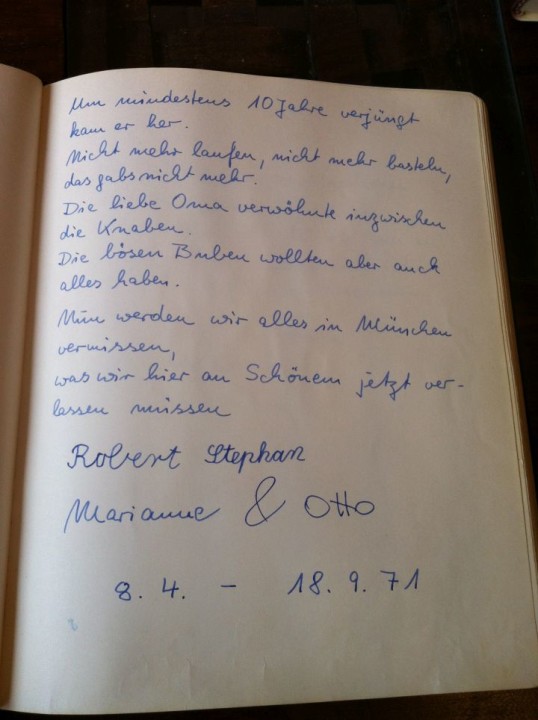 Um mindestens 10 Jahre verjüngt
kam er her.
Nicht mehr laufen, nicht mehr basteln,
das gabs nicht mehr.
Die liebe Oma verwöhnte inzwischen
die Knaben.
Die bösen Buben wollten aber auch
alles haben.
Nun werden wir alles in München
vermissen,
was wir hier an Schönem jetzt ver-
lassen müssen
Robert Stephan
Marianne & Otto
8. 4. - 18. 9. 71